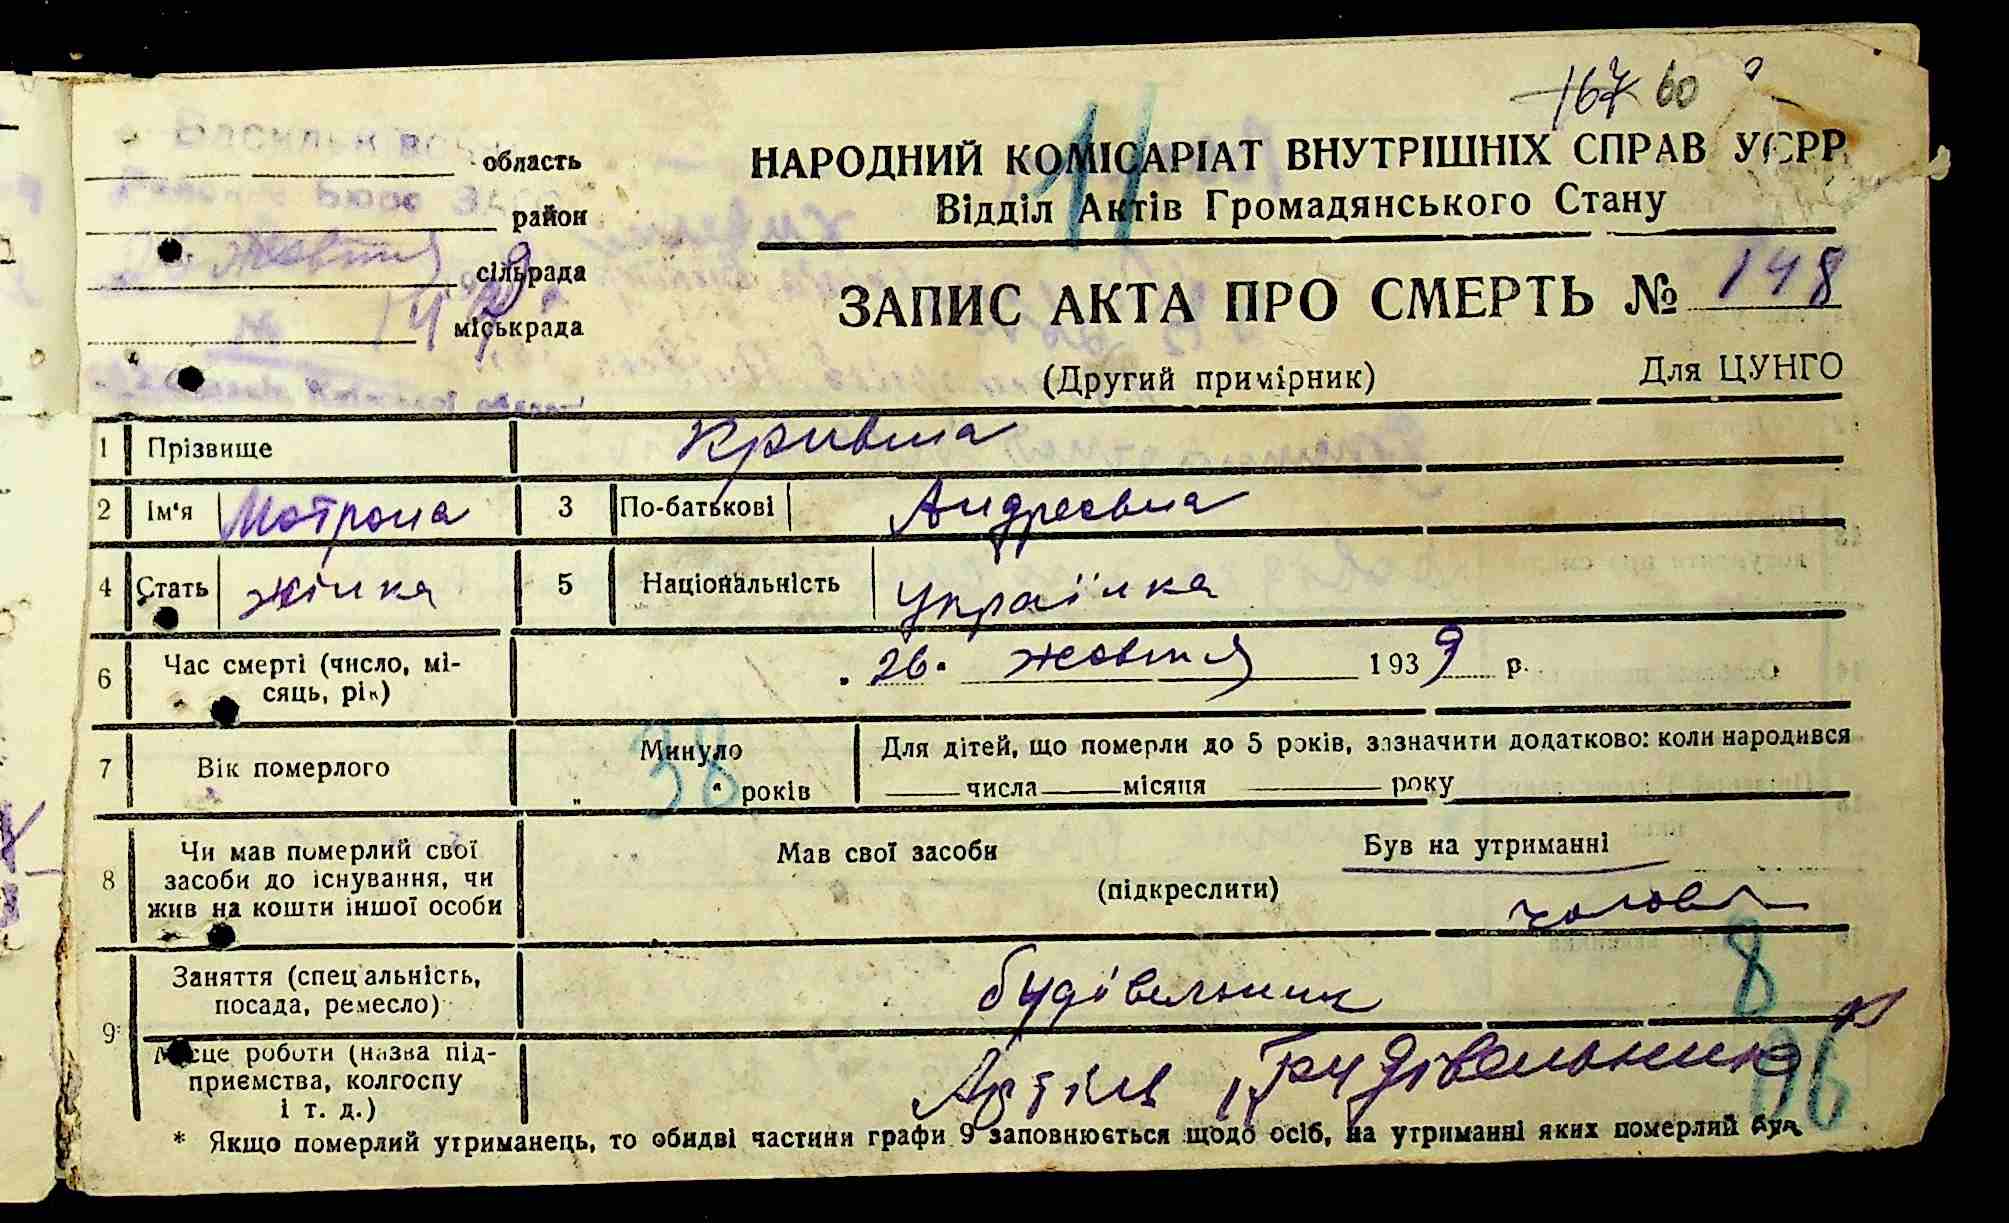 167 60
11
область
район
Жовтня
сільрада
міськрада
НАРОДНИЙ КОМІСАРІАТ ВНУТРІШНІХ СПРАВ УСРР
Відділ Актів Громадянського Стану
ЗАПИС АКТА ПРО СМЕРТЬ № 148
(Другий примірник) Для ЦУНГО
1 Прізвище
2 Ім'я Мотрона 3 По-батькові Андреевна
4 Стать жінка 5 Національність українка
6 Час смерті (число, мі-
сяць, рік) 26. жовтня 1939 р.
7 Вік померлого Минуло
„ 38 “ років
Для дітей, що померли до 5 років, зазначити додатково: коли народився
числа місяця року
8 Чи мав померлий свої
засоби до існування, чи
жив на кошти іншої особи
Мав свої засоби Був на утриманні
(підкреслити)
9* Заняття (спеціальність,
посада, ремесло) будівельник 8
Місце роботи (назва під-
приємства, колгоспу
і т. д.) Артіль Будівельник
96
* Якщо померлий утриманець, то обидві частини графи 9 заповнюється щодо осіб, на утриманні яких померлий був